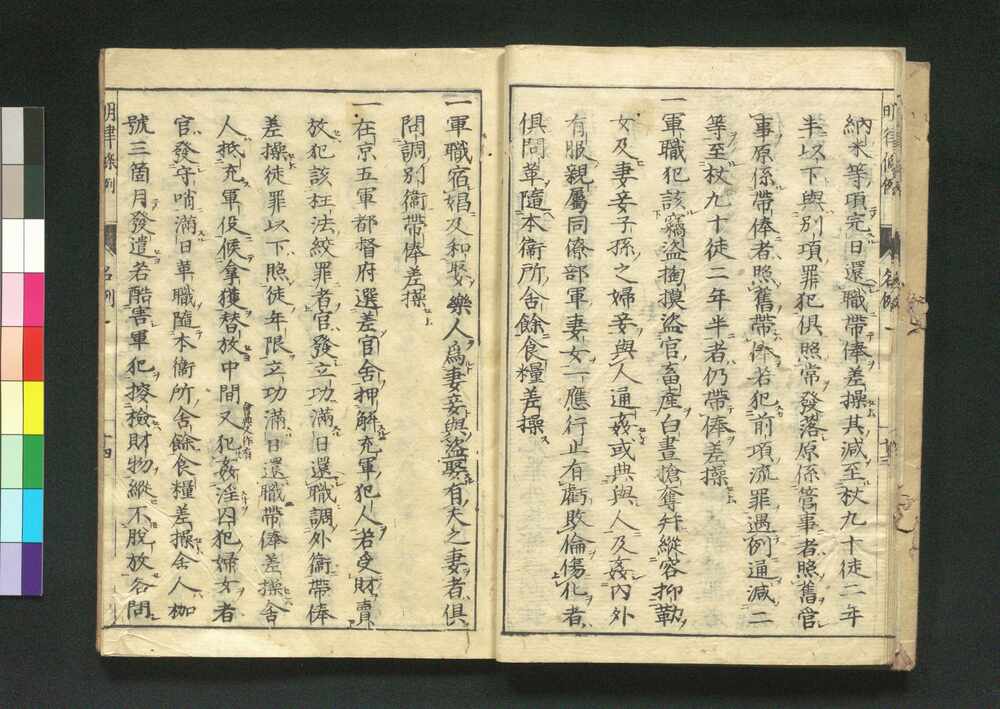 明律條例
名例
納米等項完日還職帶俸差操其減至杖九十徒二年
半以下與別項罪犯俱照常發落原係管事者照舊管
事原係帶俸者照舊帶俸若犯前項流罪遇例通減二
等至杖九十徒二年半者仍帶俸差操
一軍職犯該竊盜掏摸盜官畜產白晝搶奪并縱容抑勒
女及妻妾子孫之婦妾與人通姦或典與人及姦內外
有服親屬同僚部軍妻女一應行止有虧敗倫傷化者
俱問革隨本衞所舍餘食糧差操
一軍職宿娼及和娶樂人爲妻妾與盜娶有夫之妻者俱
問調別衞帶俸差操
一在京五軍都督府選差官舍押解充軍犯人若受財賣
放犯該枉法絞罪者官發立功滿日還職調外衞帶俸
差操徒罪以下照徒年限立功滿日還職帶俸差操舍
人抵充軍役候拿獲替放中間又犯姦淫囚犯婦女者
官發守哨滿日革職隨本衞所舍餘食糧差操舍人枷
號三箇月發遣若酷害軍犯搜檢財物縱不脫放各問
明律條例
名例一
十四